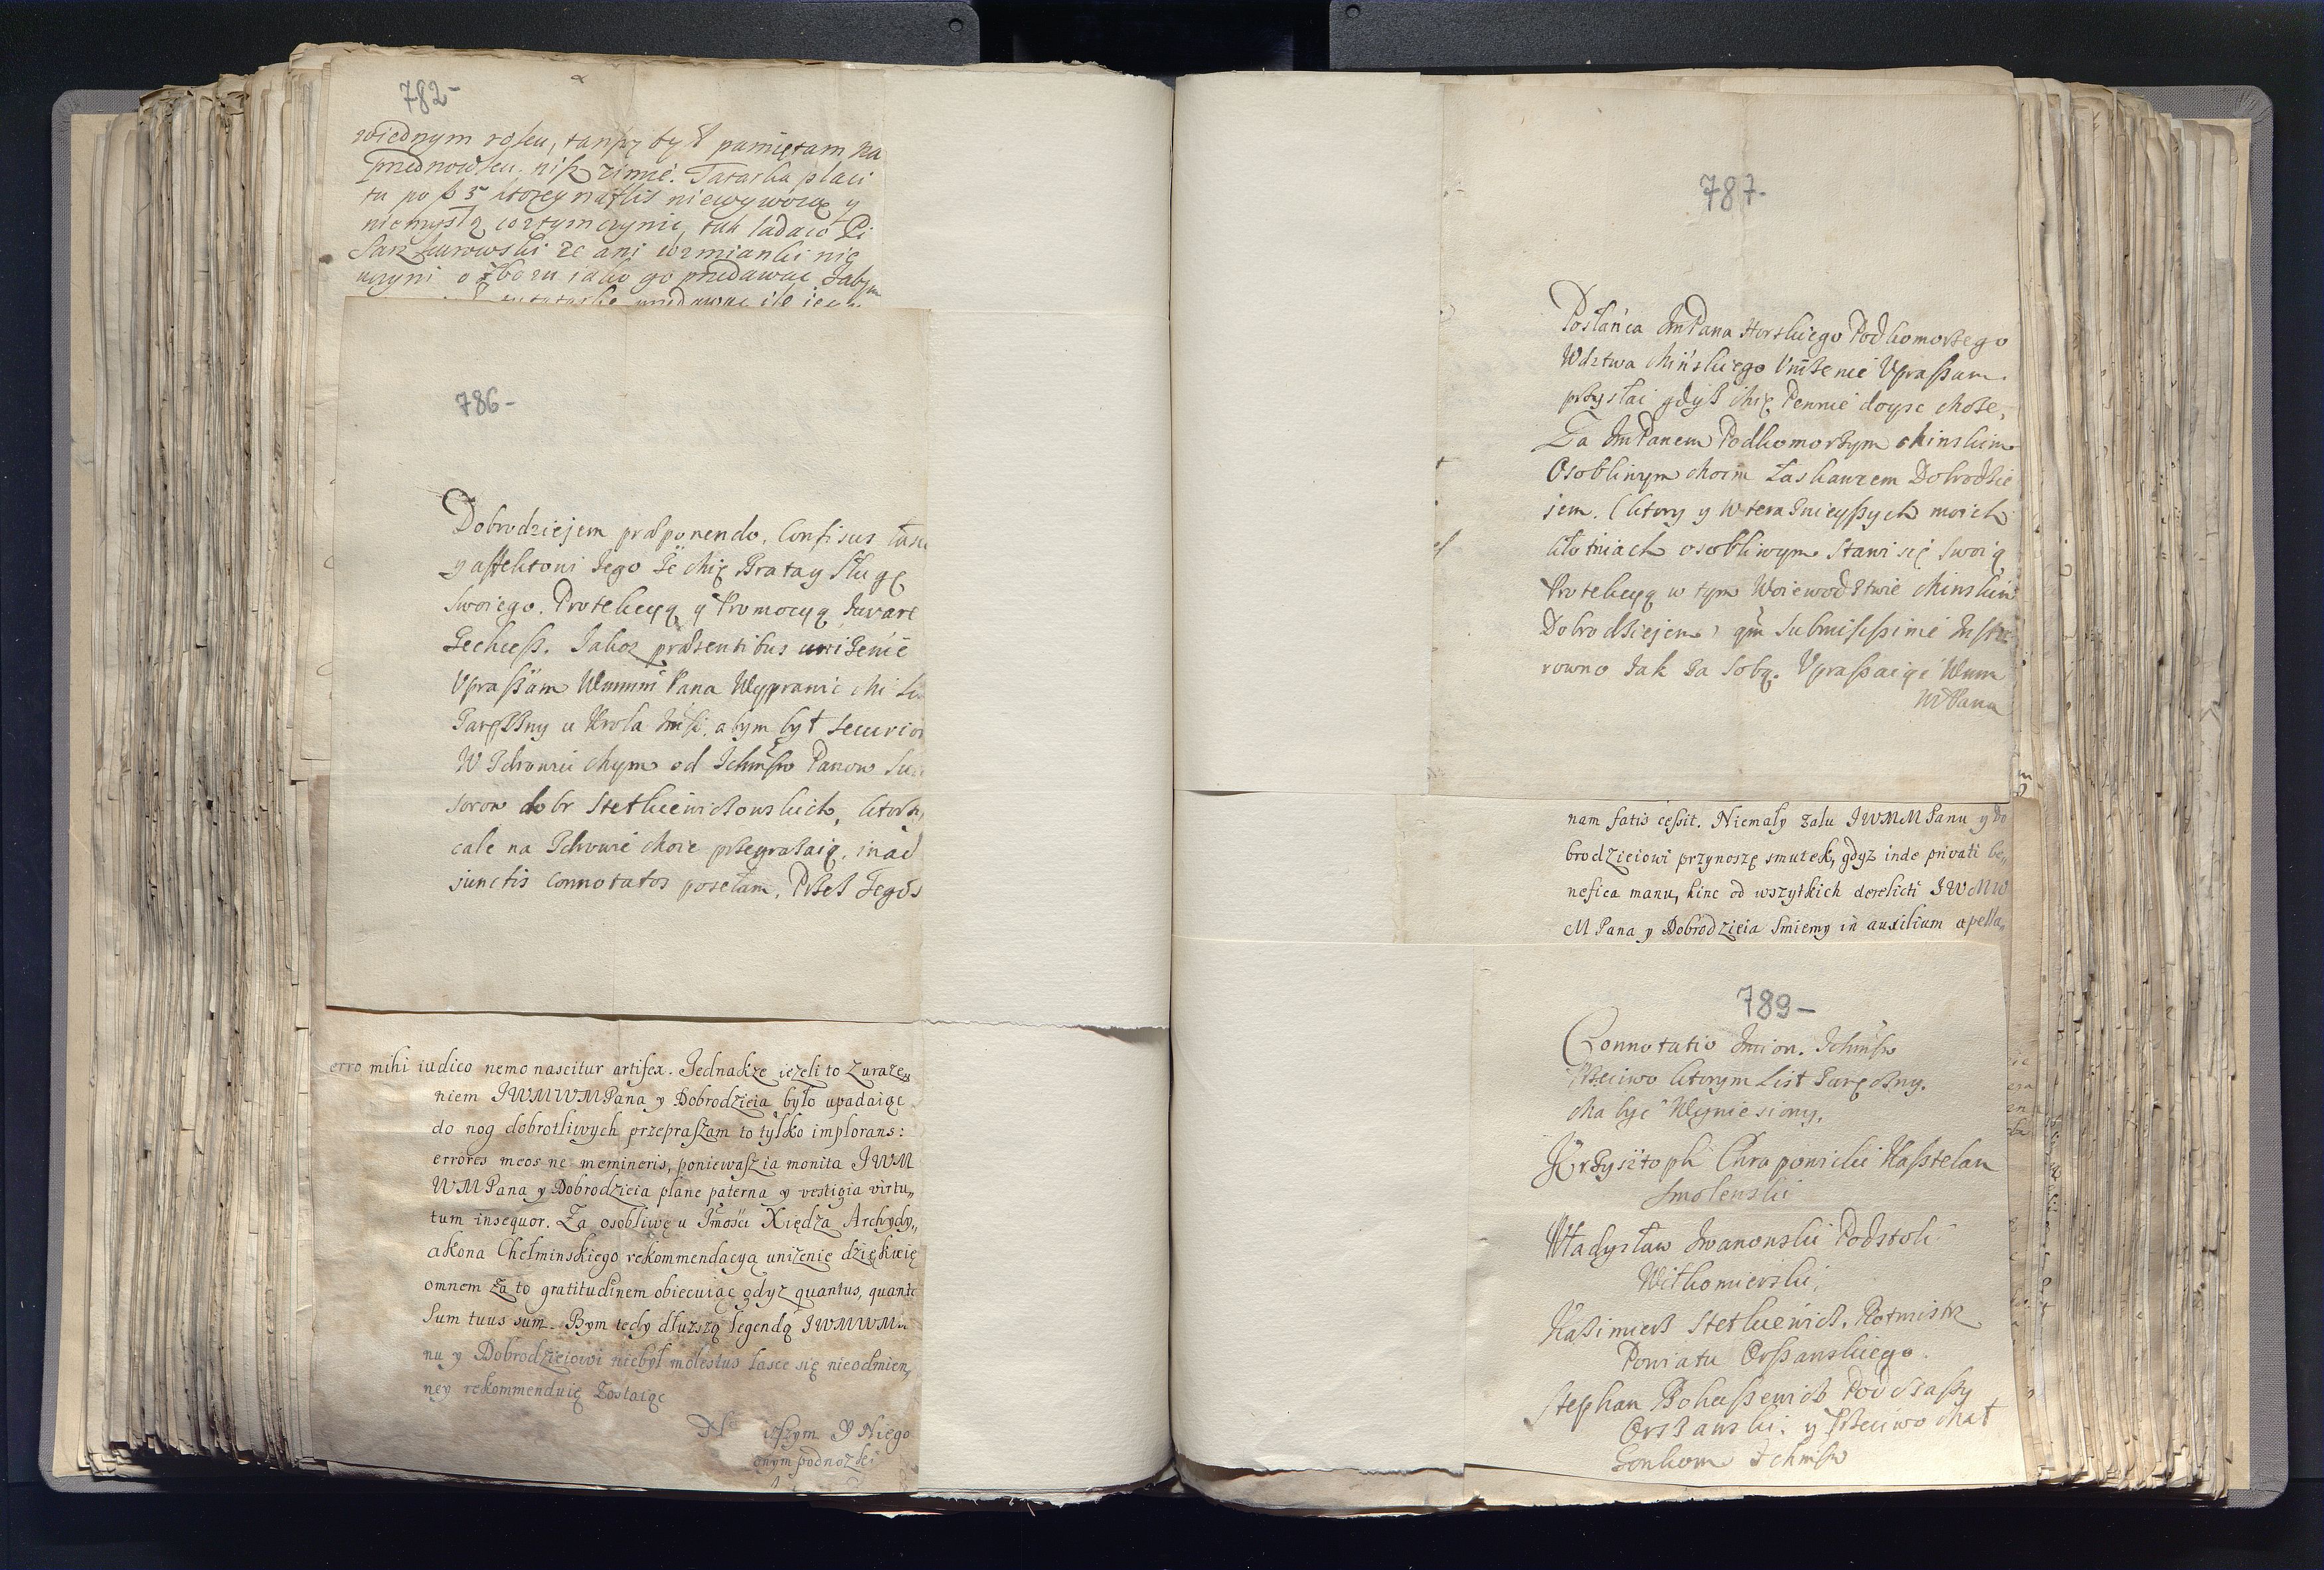 782-
wiednym roku, tanszy był pamiętam na
przednowku. nisz zimie. Tatarka płaci
tu po
niemyslą co ztym czynic, tak ladaco Pi
sarz Żurowski ze ani wzmianki nie
uczyni o zbozu iako go przedawac
786-
Dobrodziejem præponendo, Confisus
y affektowi Jego Że Mię Brata y Sługę
Swoiego. Protekcyą y Promocyą Juvare
Zechcesz. Jakoż præsentibus uniżenie
Upraszam Pana Wyprawic Mi
Zaręczny u Krola
abym był securior
W Zdrowiu Mym od Ichmśw Panow
sorow dobr Stetkiewiczowskich, ktorzy
cale na Zdrowie Moie przegrażaią, in ad
junctis connotatos posełam. Przez Tegoż
erro mihi iudico nemo nascitur artifex. Jednakże ieżeli to Zuraże„
niem JWMWMPana y Dobrodzieia było upadaiąc
do nog dobrotliwych przepraszam to tylko implorans:
errores meos ne memineris, poniewasz ia monita JWM
WMPana y Dobrodzieia plane paterna y vestigia virtu„
tum insequor. Za osobliwę u Jmości Xiędza Archydy„
akona Chełminskiego rekommendacyą unizenie dziękuię
omnem za to gratitudinem obiecuiąc gdyz quantus, quantus
Sum tuus sum. Bym tedy dłuzszą legendą JWMWM
nu y Dobrodzieiowi niebył molestus łasce się nieodmien„
ney rekommenduię Zostaiąc
iszym Y Niego
podnozki
787-
Posłańca JmPana Horskiego Podkomorzego
Wdztwa Mińskiego Uniżenie Upraszam.
przysłac gdysz Mię Pewnie doysc Może,
Za JmPanem Podkomorzym Minskim
Osobliwym Moim Łaskawcem Dobrodzie
jem. (ktory y w teraznieyszych moich
kłotniach osobliwym Stawi się Swoią
Protekcyą w tym Woiewodztwie Minskim
Dobrodziejem) qm Submississime
rowno Jak Za Sobą. Upraszaiąc Wmm
MPana
nam fatis cessit. Niemały zalu JWMMPanu y Do
brodzieiowi przynoszę smutek, gdyz inde privati be„
nefica manu, hinc od wszytkich derelicti JWMW
MPana y Dobrodzieia Smiemy in auxilium apella„
789-
Connotatio Imion. Ichmśw
Przeciwo ktorym List Zaręczny.
Ma byc Wyniesiony.
Krzysztoph Chrapowicki Kasztelan
Smolenski
Władysław Iwanowski Podstoli
Wiłkomierski.
Kazimierz Stetkiewicz, Rotmistrz
Powiatu Orszanskiego.
Stephan Bohuszewicz Podczaszy
Orszanski: y Przeciwo Mał
Żonkom Ichmśw